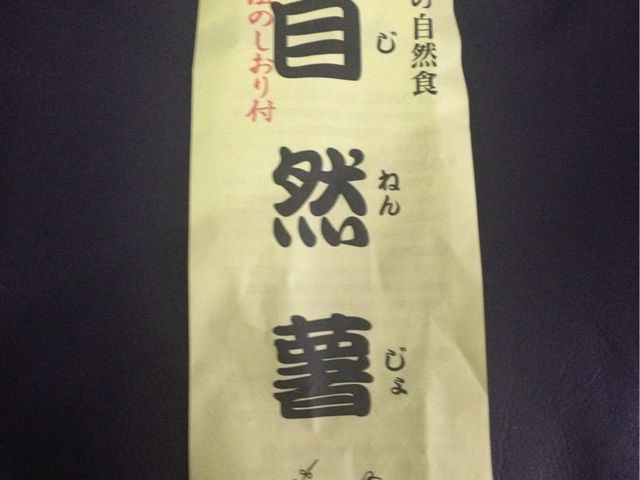 の自然食
自然薯
じねんじょ
法のしおり付